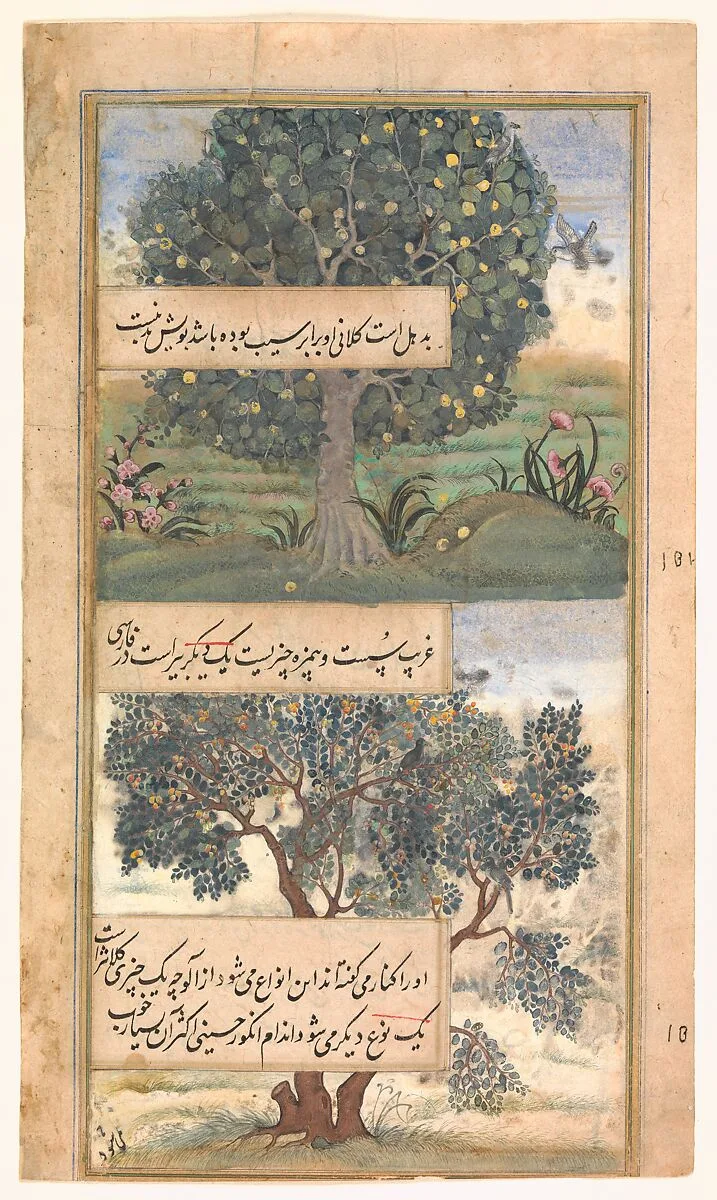 بدهل است کلانی او برابر سیب بوده باشد بویش بد نیست
غریب پُست و بیمزه چیزیست یک دیگر بیر است در فارسی
او را کنار می گفته اند این انواع می شود از آلوچه یک چیزی کلانتر است
یک نوع دیگر می شود اندام انگور حسینی اکثر آن بسیار خوب